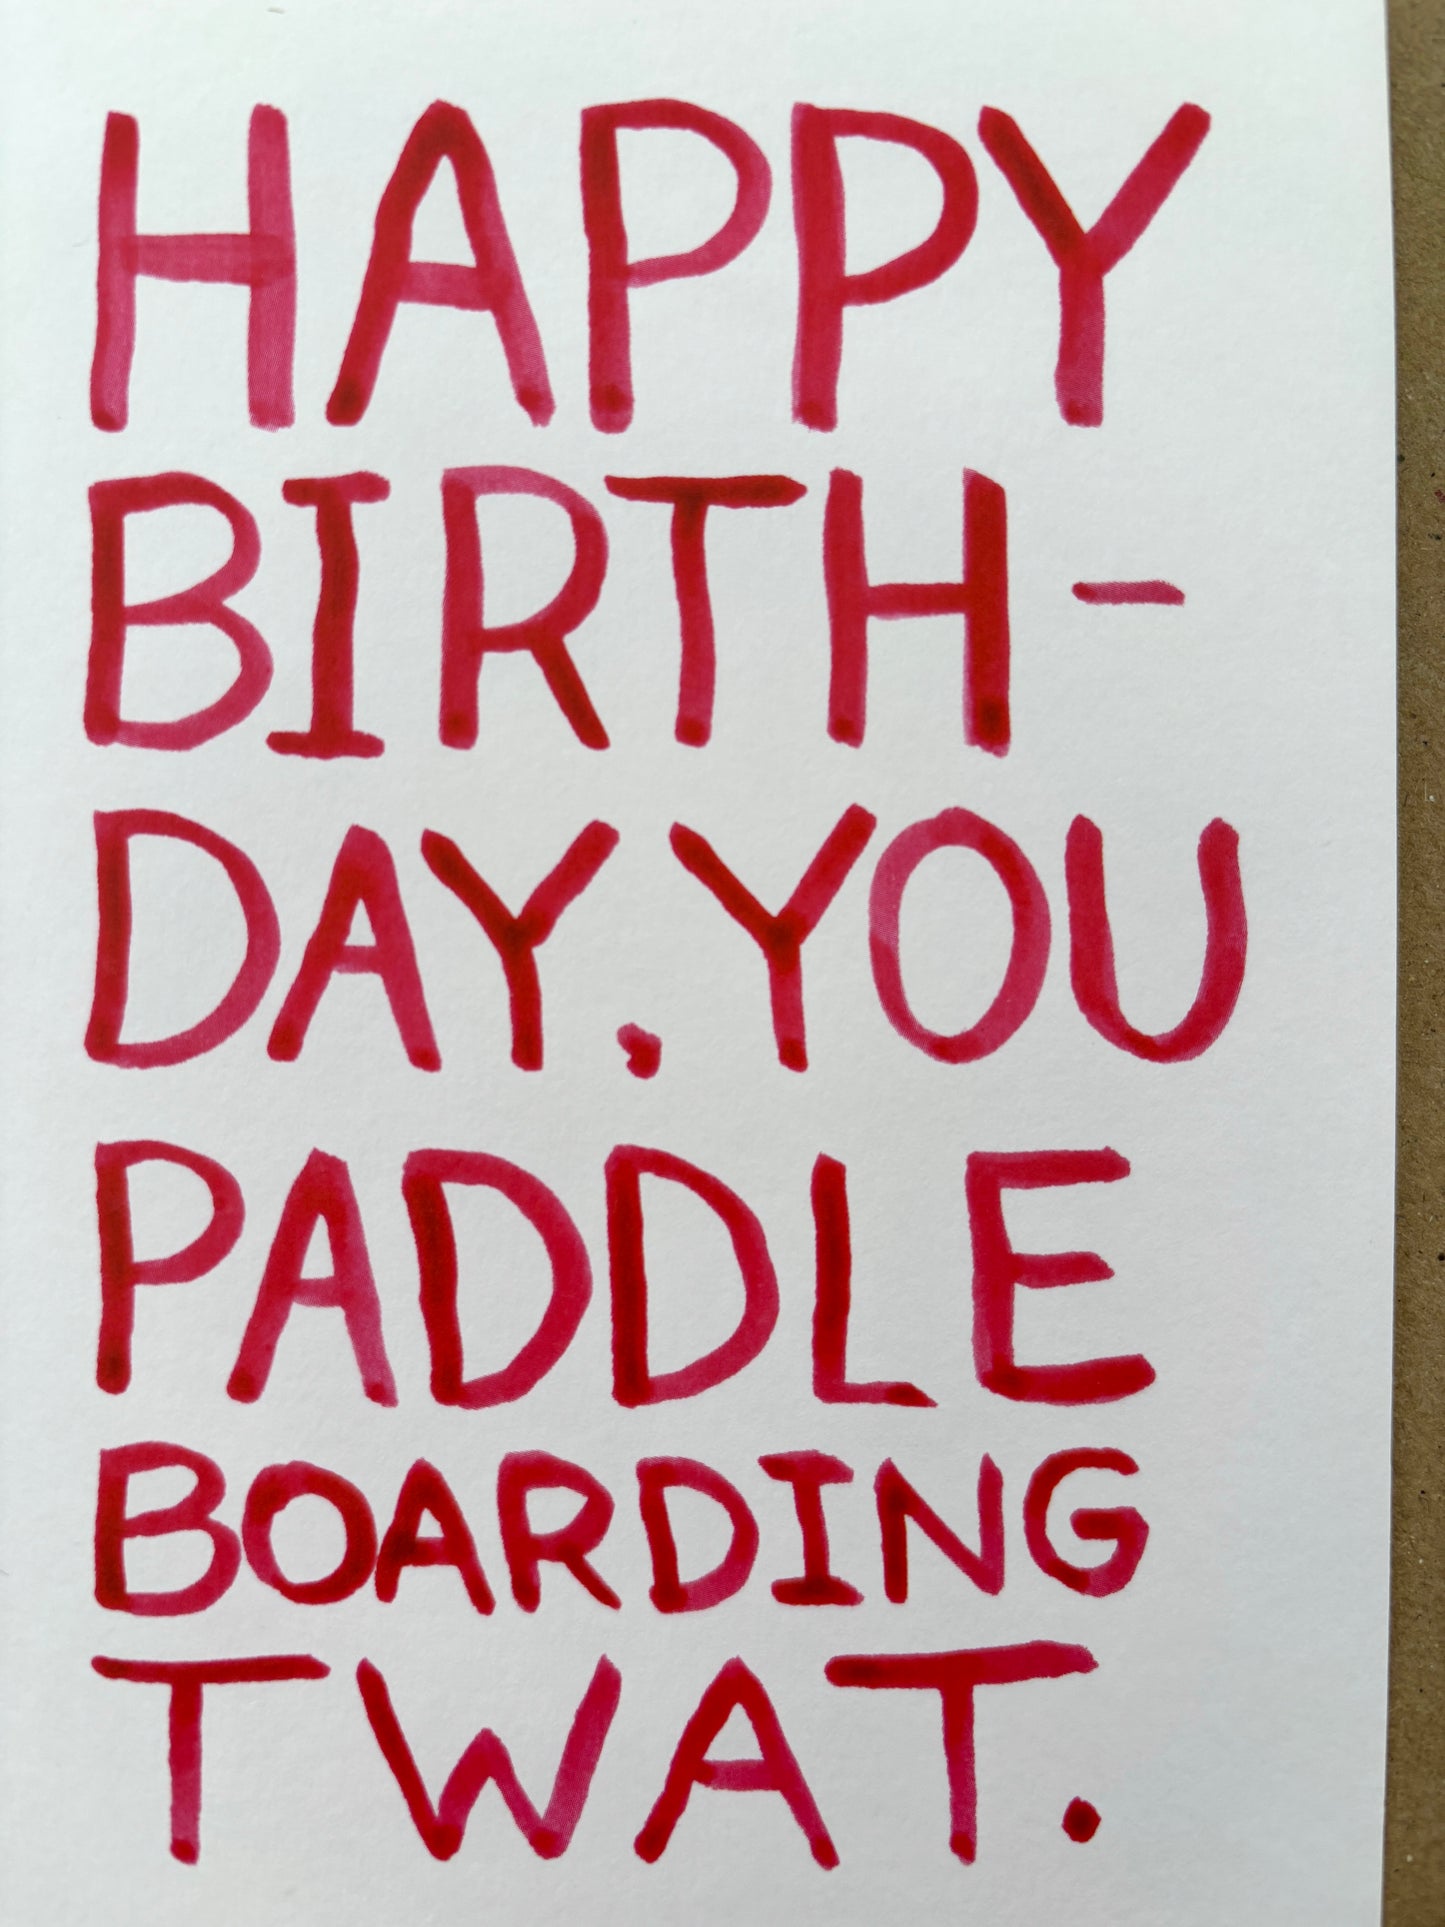 HAPPY
BIRTH-
DAY, YOU
PADDLE
BOARDING
TWAT.